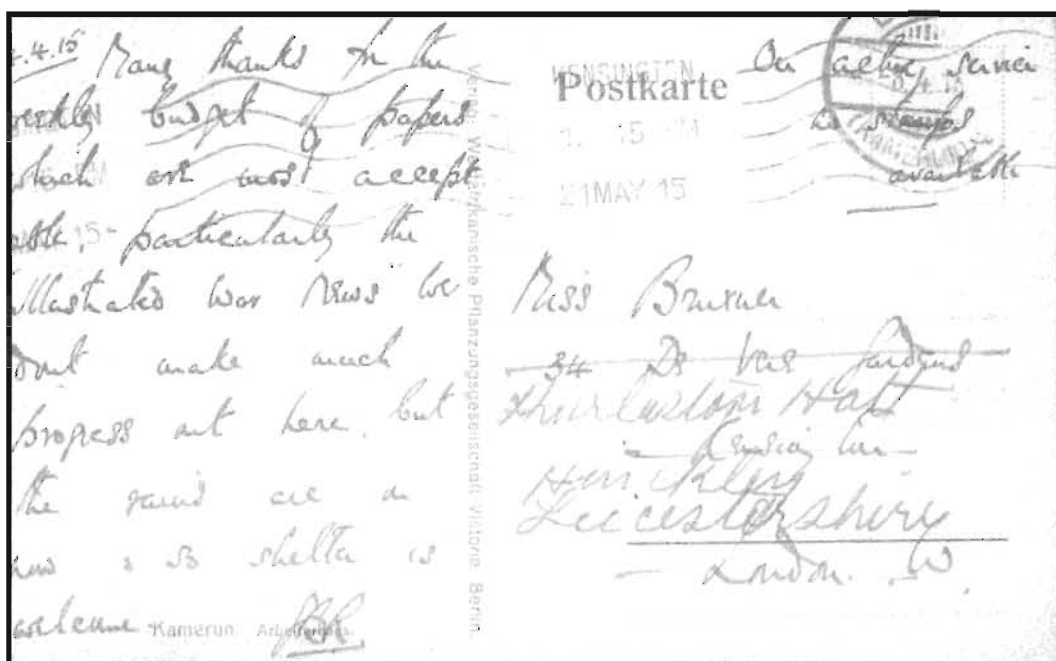 4.4.15 Many thanks for the
weekly budget of papers
which are most accept
able, particularly the
Illustrated War News we
don't make much
progress out here, but
the rains are on
now & so shelter is
welcome
Kamerun. Arbeiterhaus.
Westafrikanische Pflanzungsgesellschaft Victoria Berlin.
Postkarte
KENSINGTON
15
21MAY 15
On active service
no stamps
available
Miss
34 De Vere Gardens
Thurlaston Hall
Kensington
Hinckley
Leicestershire
London. W.